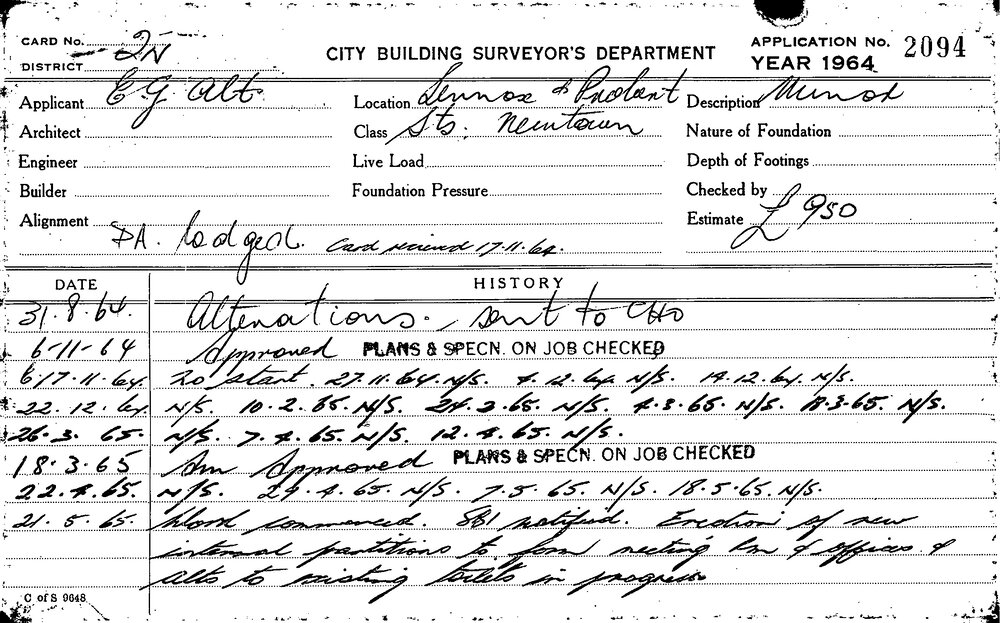 CARD No. 2N
DISTRICT
CITY BUILDING SURVEYOR'S DEPARTMENT
APPLICATION No. 2094
YEAR 1964
Applicant E G Alt
Location Lennox & Probert
Description Munox
Architect
Class Sts. Newtown
Nature of Foundation
Engineer
Live Load
Depth of Footings
Builder
Foundation Pressure
Checked by
Alignment
Estimate £950
DA. lodged. Card received 17.11.64.
DATE
HISTORY
31.8.64. Alterations. sent to CHO
6-11-64 Approved PLANS & SPECN. ON JOB CHECKED
17.11.64. No start. 27.11.64. N/S. 4.12.64. N/S. 14.12.64. N/S.
22.12.64. N/S. 10.2.65. N/S. 24.2.65. N/S. 4.3.65. N/S. 18.3.65. N/S.
26.3.65. N/S. 7.4.65. N/S. 12.4.65. N/S.
18.3.65 Am Approved PLANS & SPECN. ON JOB CHECKED
22.4.65. N/S. 29.4.65. N/S. 7.5.65. N/S. 18.5.65. N/S.
21.5.65. Work commenced. SBI notified. Erection of new
internal partitions to form meeting Rm & offices &
alts to existing toilets in progress
C of S 9648